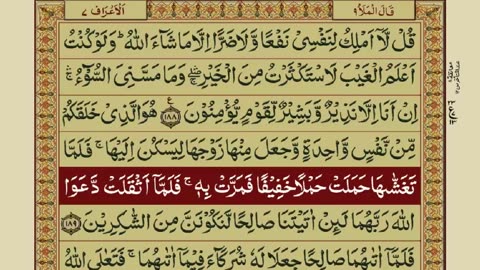 قَالَ الْمَلَاُ ٩
اَلْاَعْرَاف ٧
قُلْ لَّاۤ اَمْلِكُ لِنَفْسِیْ نَفْعًا وَّلَا ضَرًّا اِلَّا مَا شَآءَ اللّٰهُ ؕ وَلَوْ كُنْتُ
اَعْلَمُ الْغَیْبَ لَاسْتَكْثَرْتُ مِنَ الْخَیْرِ ۛۚ وَمَا مَسَّنِیَ السُّوْٓءُ ۛۚ
اِنْ اَنَا اِلَّا نَذِیْرٌ وَّبَشِیْرٌ لِّقَوْمٍ یُّؤْمِنُوْنَ ﴿۱۸۸﴾ هُوَ الَّذِیْ خَلَقَكُمْ
مِّنْ نَّفْسٍ وَّاحِدَةٍ وَّجَعَلَ مِنْهَا زَوْجَهَا لِیَسْكُنَ اِلَیْهَا ۚ فَلَمَّا
تَغَشّٰىهَا حَمَلَتْ حَمْلًا خَفِیْفًا فَمَرَّتْ بِهٖ ۚ فَلَمَّاۤ اَثْقَلَتْ دَّعَوَا
اللّٰهَ رَبَّهُمَا لَىِٕنْ اٰتَیْتَنَا صَالِحًا لَّنَكُوْنَنَّ مِنَ الشّٰكِرِیْنَ ﴿۱۸۹﴾
فَلَمَّاۤ اٰتٰىهُمَا صَالِحًا جَعَلَا لَهٗ شُرَكَآءَ فِیْمَاۤ اٰتٰىهُمَا ۚ فَتَعٰلَى اللّٰهُ